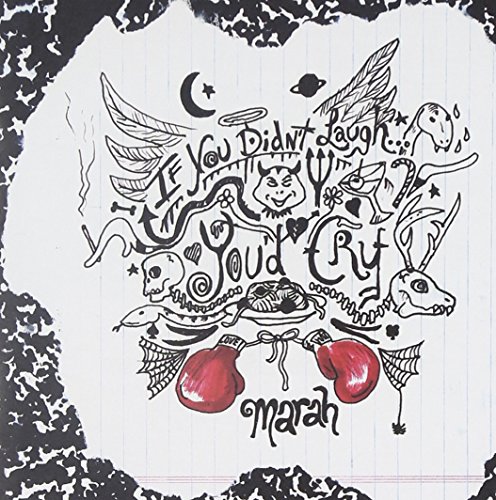 If You Didn't Laugh...
You'd Cry
Marah